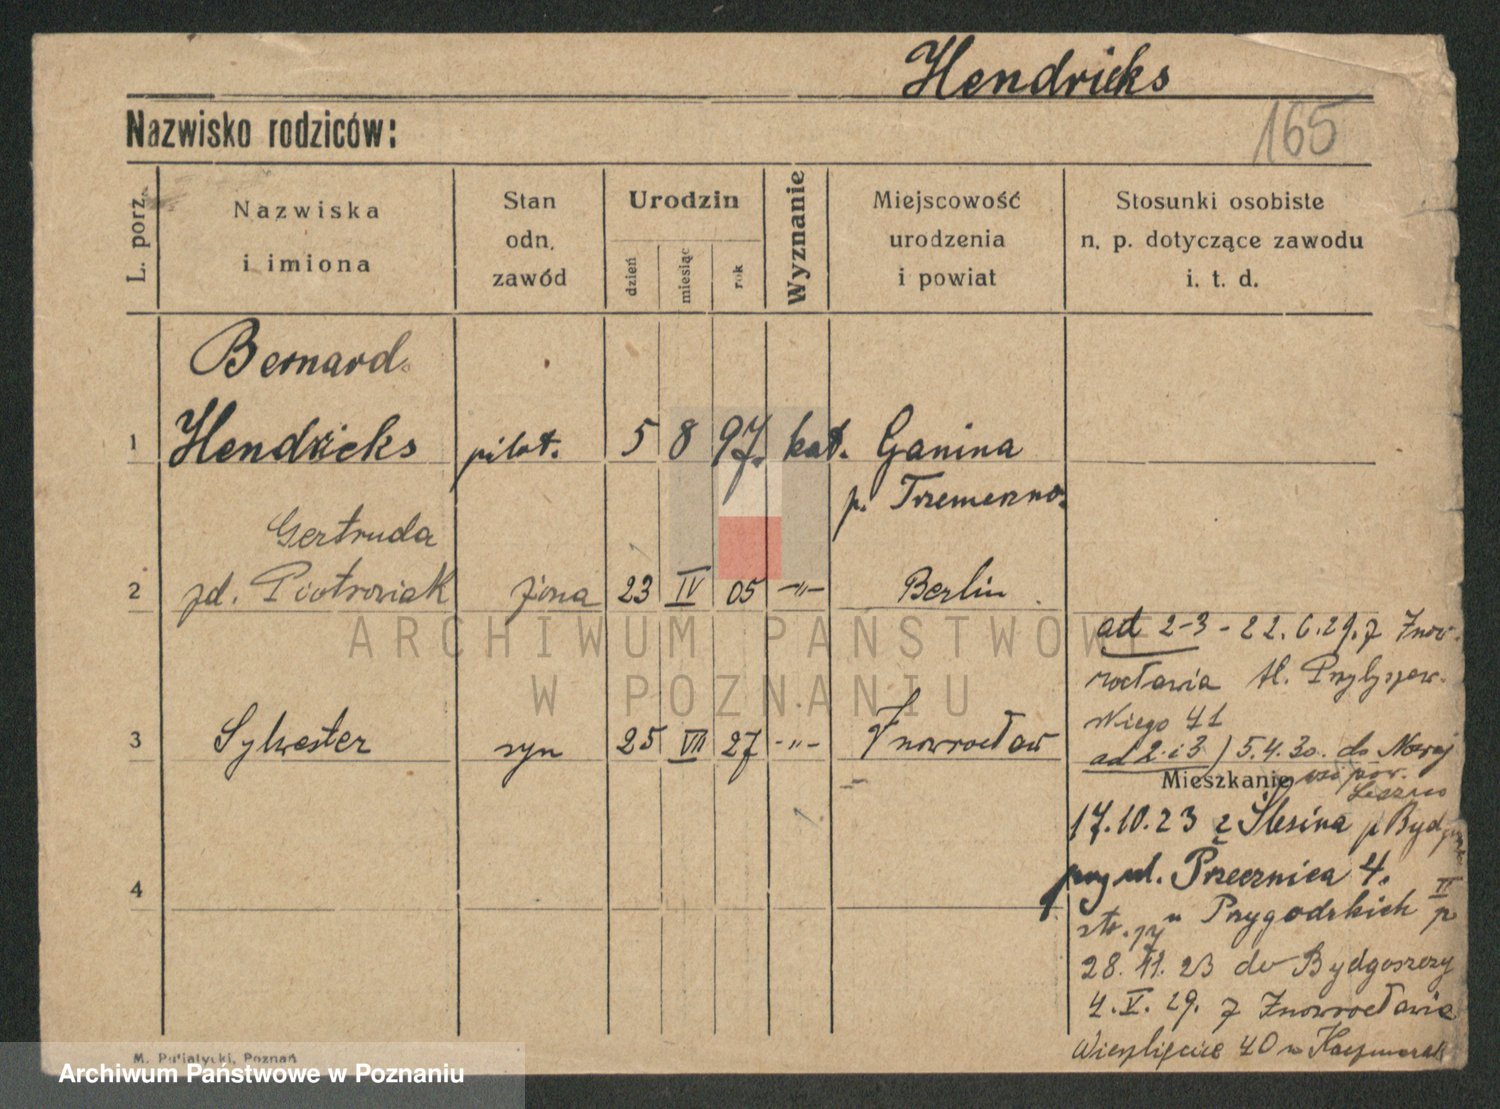 Hendricks
Nazwisko rodziców:
165
L. porz.
Nazwiska
i imiona
Stan
odn.
zawód
Urodzin
dzień
miesiąc
rok
Wyznanie
Miejscowość
urodzenia
i powiat
Stosunki osobiste
n. p. dotyczące zawodu
i. t. d.
Bernard
1 Hendricks pilot. 5 8 97. kat. Ganina
p. Trzemeszno.
Gertruda
2 zd. Piotrowiak żona 23 IV 05 -"- Berlin
ad 2-3 - 22.6.29. z Ino-
wrocławia
3 Sylwester syn 25 VII 27 -"- Inowrocław
skiego 41
ad 2 i 3) 5.4.30. do
Mieszkanie pow.
Leszno
17.10.23 z Ślesina p Bydg
4 przy ul. Przecznica 4. II
u Przygodzkich p
28.11.23 do Bydgoszczy
4.V.29. z Inowrocławia
40 u
ARCHIWUM PAŃSTWOWE
W POZNANIU
M. Putiatycki, Poznań
Archiwum Państwowe w Poznaniu